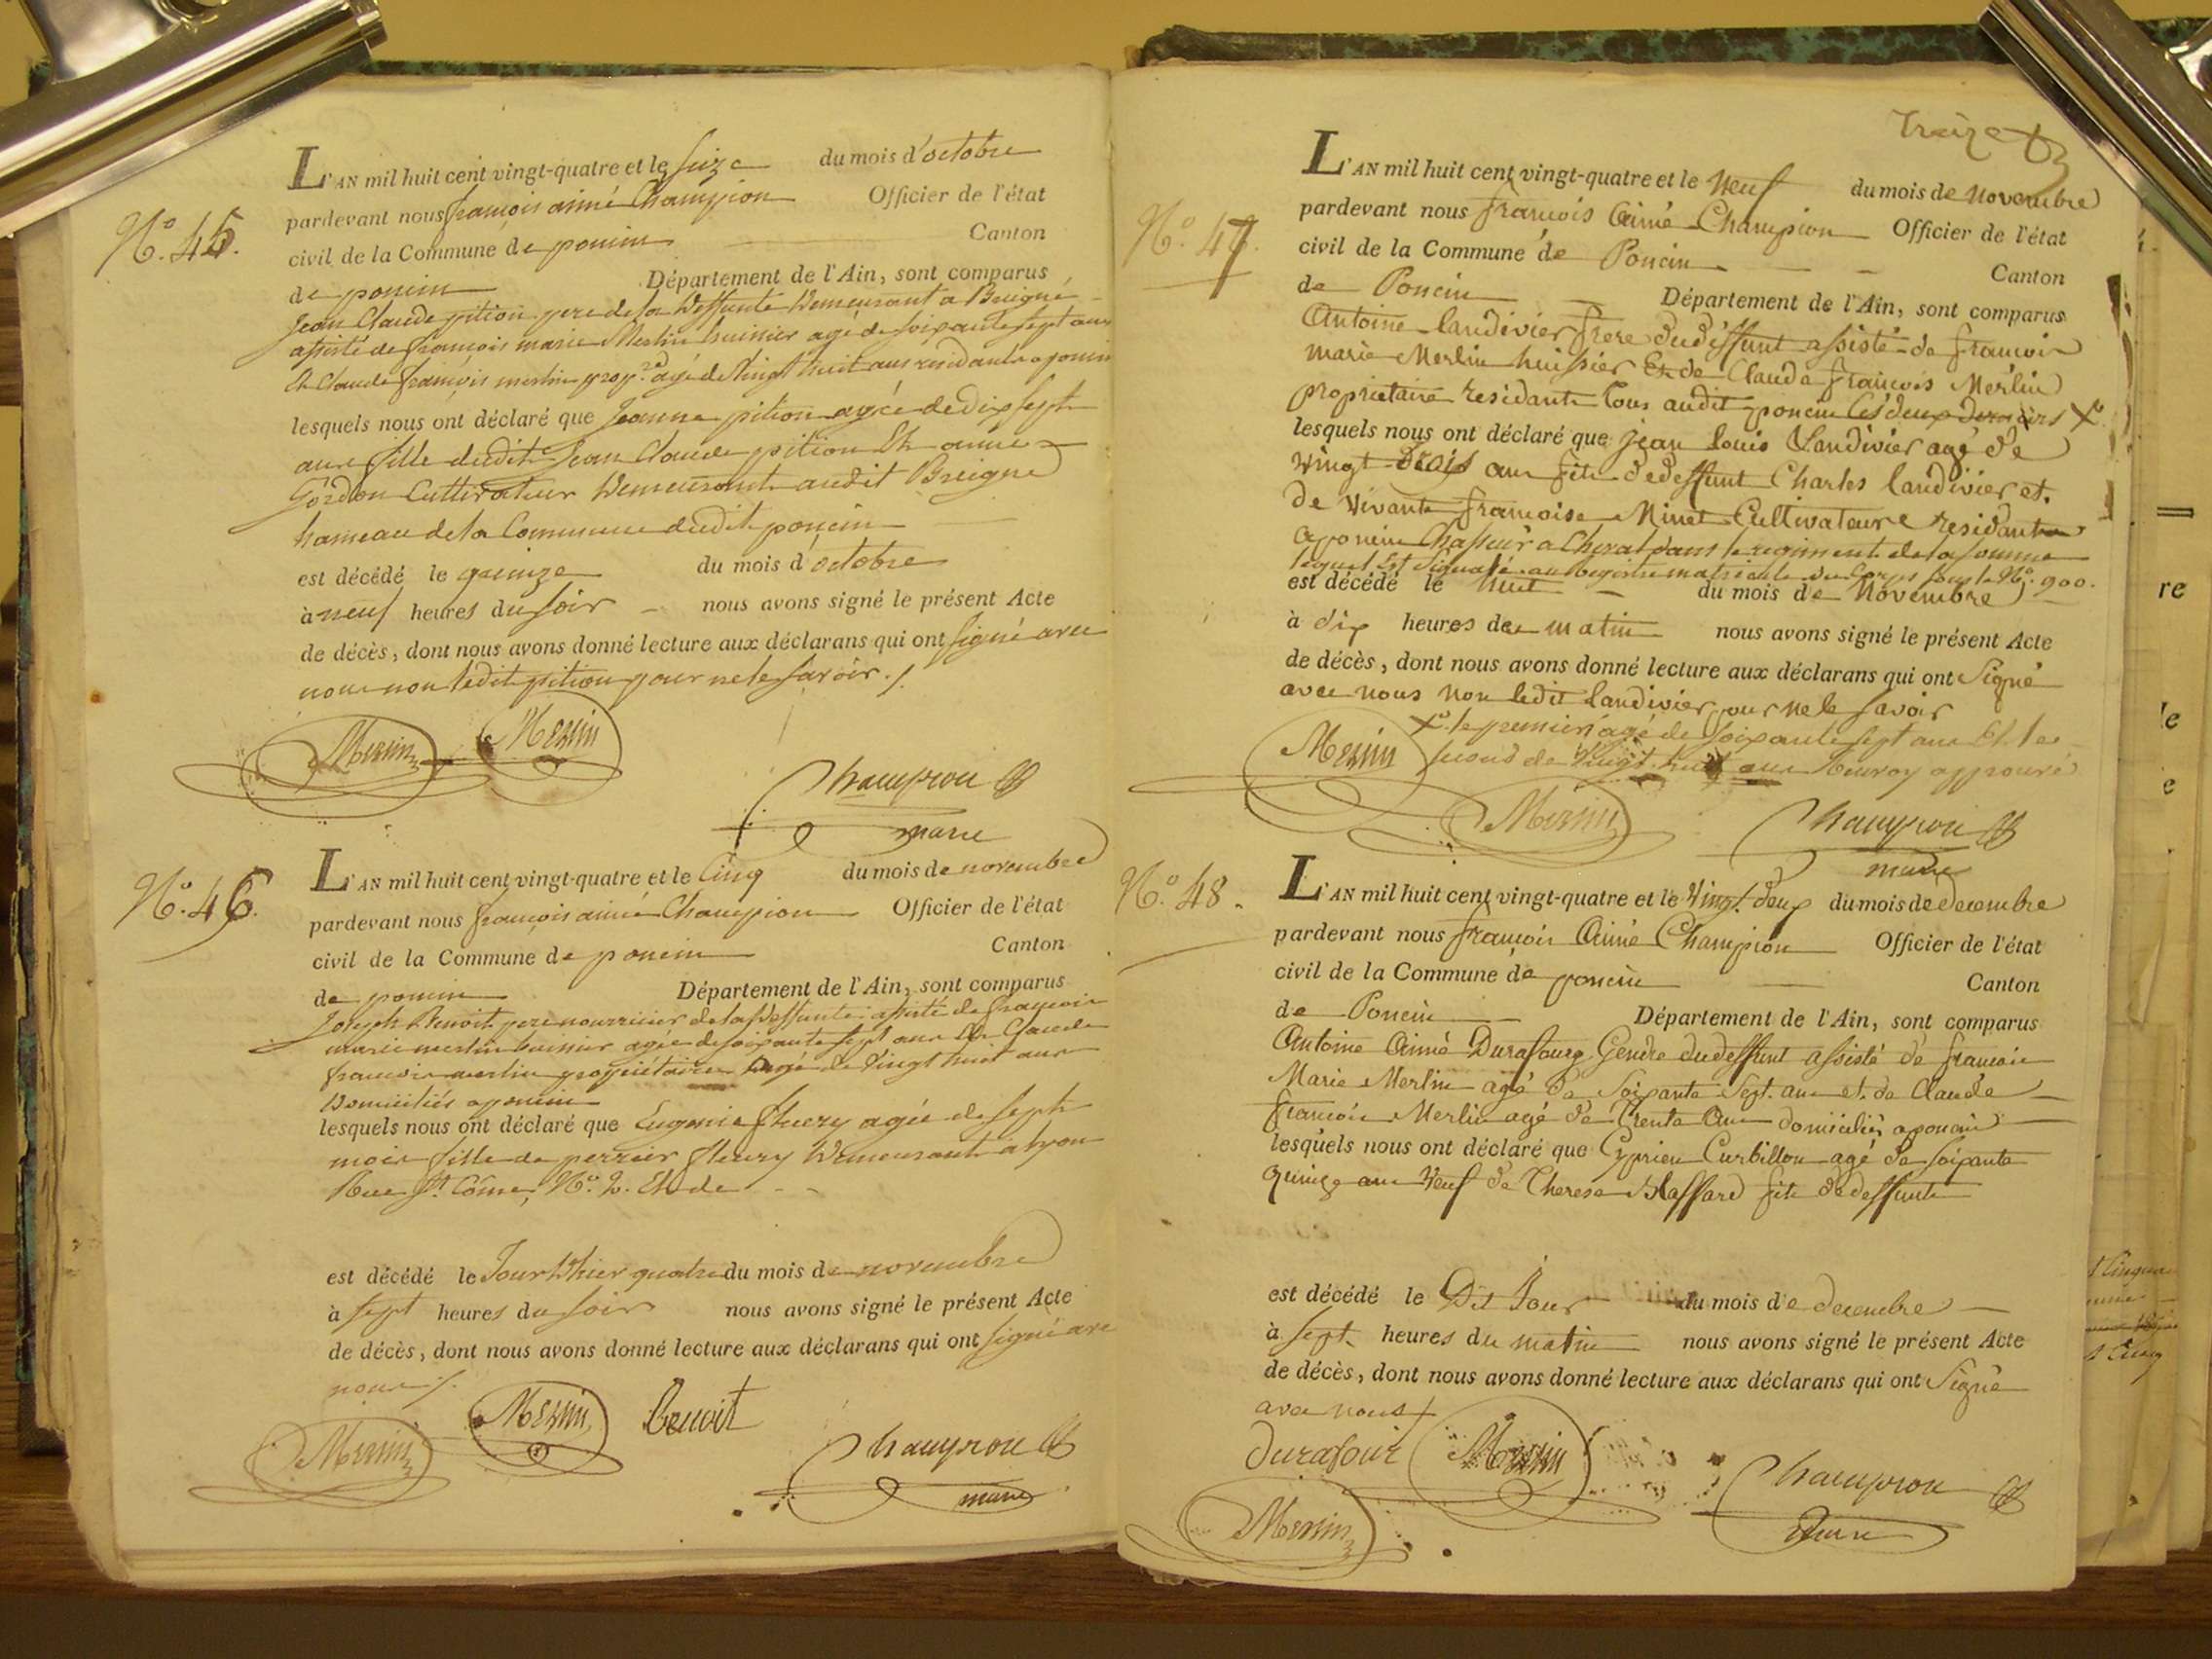 L'AN mil huit cent vingt-quatre et le seize du mois d'octobre
pardevant nous françois aimé Champion Officier de l'état
N.º 45.
civil de la Commune de poncin Canton
de poncin Département de l'Ain, sont comparus
Jean Claude pition pere de la deffunte demeurant a Breigne
assisté de françois marie Merlin huissier agé de soixante sept ans
Et Claude françois merlin prop.re agé de vingt huit ans residants a poncin
lesquels nous ont déclaré que Jeanne pition agée de dix sept
ans fille dudit Jean Claude pition Et anne
Gordon Cultivateur demeurant audit Breigne
hameau de la Commune dudit poncin
est décédé le quinze du mois d'octobre
à neuf heures du soir nous avons signé le présent Acte
de décès, dont nous avons donné lecture aux déclarans qui ont signé avec
nous non ledit pition pour ne le savoir ./.
Merlin Merlin
Champion
maire
N.º 46.
L'AN mil huit cent vingt-quatre et le cinq du mois de novembre
pardevant nous françois aimé Champion Officier de l'état
civil de la Commune de poncin Canton
de poncin Département de l'Ain, sont comparus
Joseph Benoit pere nourricier de la deffunte assisté de françois
marie merlin huissier agé de soixante sept ans Et Claude
francois merlin propriétaire agé de vingt huit ans
domiciliés a poncin
lesquels nous ont déclaré que Eugenie fleury agée de sept
mois fille de perrier fleury demeurant a lyon
Rue St Côme, N.º 2. Et de - -
est décédé le Jour d'hier quatre du mois de novembre
à sept heures du soir nous avons signé le présent Acte
de décès, dont nous avons donné lecture aux déclarans qui ont signé avec
nous ./.
Merlin Merlin Benoit
Champion
maire
Treize
L'AN mil huit cent vingt-quatre et le Neuf du mois de novembre
N.º 47.
pardevant nous françois Aimé Champion Officier de l'état
civil de la Commune de Poncin Canton
de Poncin Département de l'Ain, sont comparus
Antoine landivier frere dudeffunt assisté de francois
marie Merlin huissier Et de Claude françois Merlin
proprietaire residants tous audit poncin les deux derniers X
lesquels nous ont déclaré que jean louis Landivier agé de
vingt trois ans fils de deffunt Charles landivier et
de vivante francoise Minet Cultivateure residants
a poncin Chasseur a Cheval dans le regiment de la somme
lequel Est signalé au registre matricule du Corps sous le N.º 900.
est décédé le huit du mois de Novembre
à dix heures du matin nous avons signé le présent Acte
de décès, dont nous avons donné lecture aux déclarans qui ont Signé
avec nous non ledit landivier pour ne le savoir
X le premier agé de soixante sept ans Et le
second de vingt huit ans Renvoy approuvé
Merlin
Merlin
Champion
maire
N.º 48.
L'AN mil huit cent vingt-quatre et le vingt deux du mois de decembre
pardevant nous françois Aimé Champion Officier de l'état
civil de la Commune de poncin Canton
de Poncin Département de l'Ain, sont comparus
Antoine Aimé Durafourg Gendre du deffunt assisté de francois
Marie Merlin agé de soixante sept ans et de Claude
francois Merlin agé de trente ans domiciliés a poncin
lesquels nous ont déclaré que Cyprien Curbillon agé de soixante
quinze ans veuf de Therese Blaffard fils de deffunts
est décédé le Dit Jour du mois de decembre
à sept heures du matin nous avons signé le présent Acte
de décès, dont nous avons donné lecture aux déclarans qui ont signé
avec nous
durafour Merlin
Champion
maire
Merlin